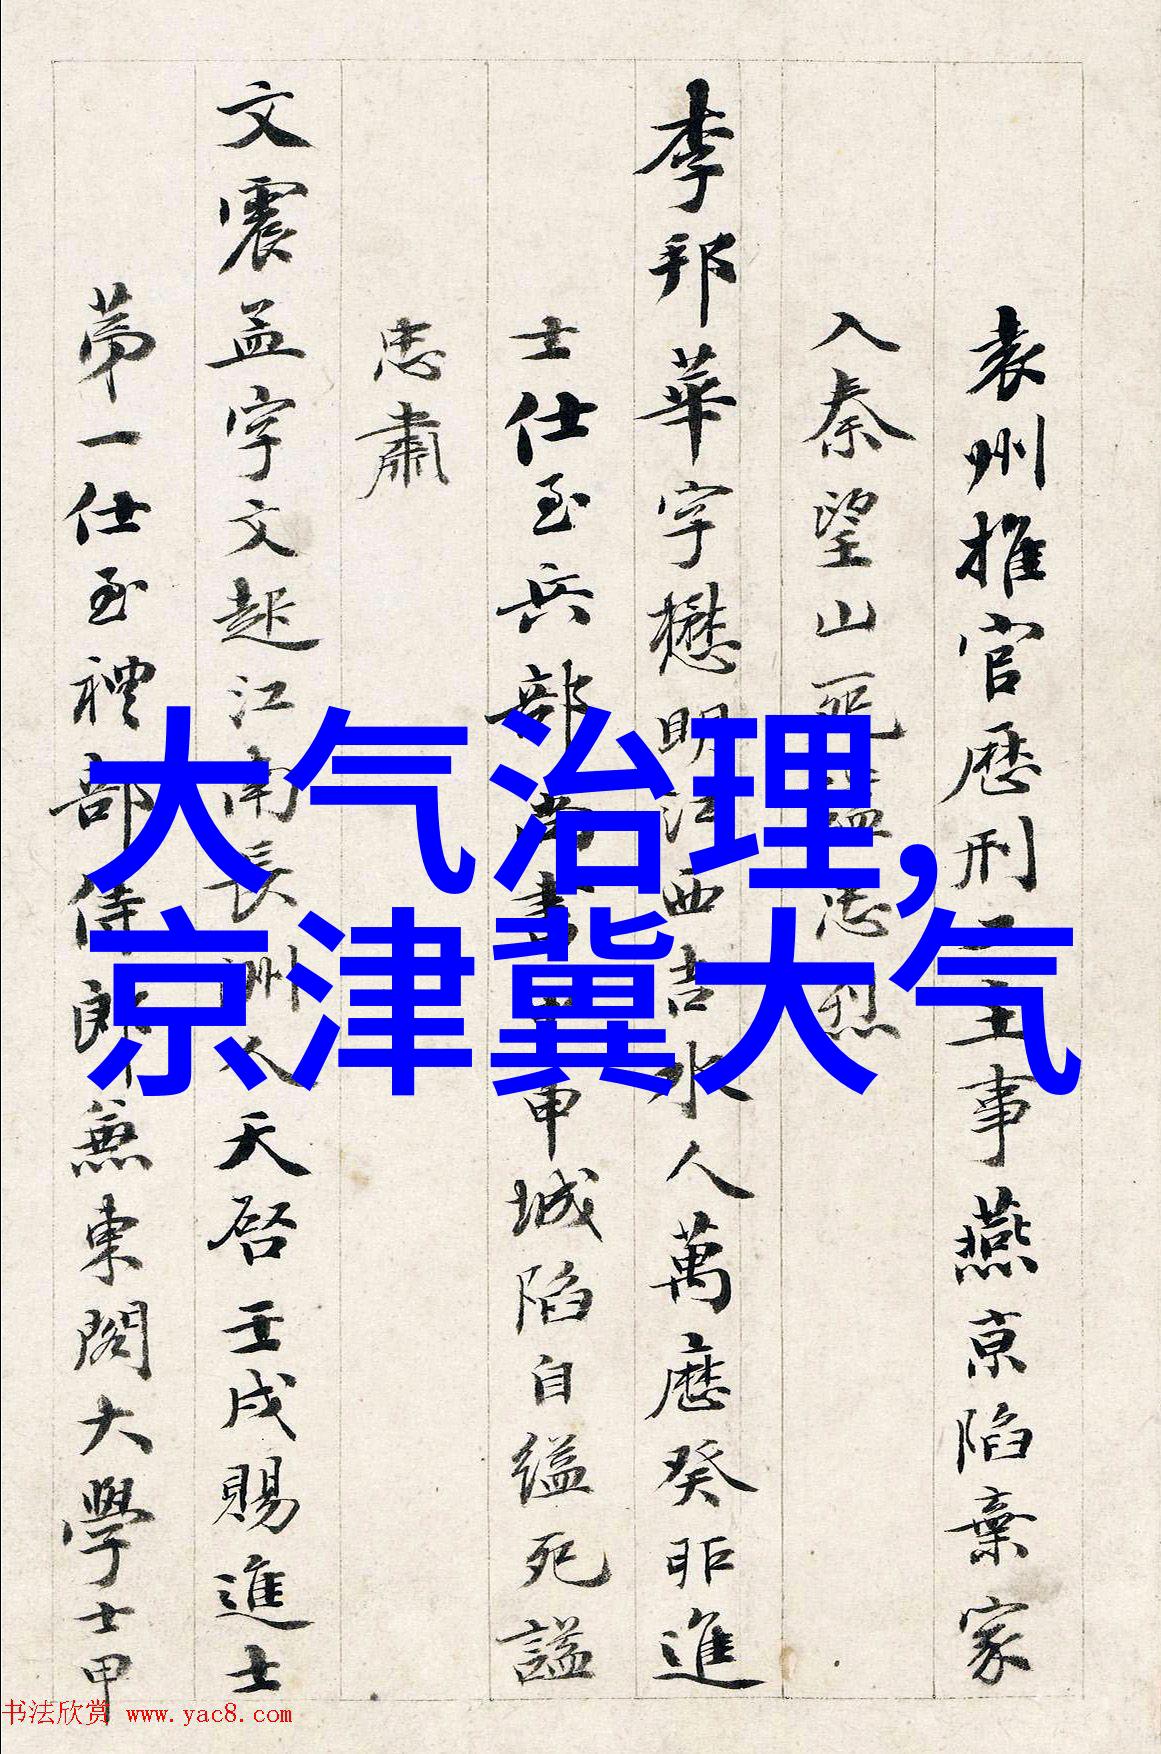 袁州推官歷刑工主事燕京陷棄家
入秦望山死謚忠烈
李邦華字懋明江西吉水人萬曆癸卯進
士仕至兵部尚書甲申城陷自縊死謚
忠肅
文震孟字文起江南長洲人天啓壬戌賜進士
第一仕至禮部侍郎兼東閣大學士甲
大气治理,
京津冀大气
书法欣赏 www.yac8.com